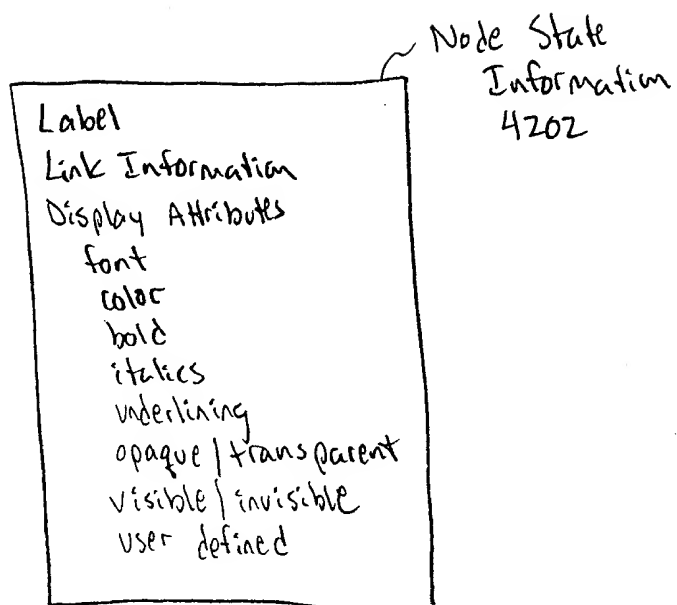 Node State
Information
4202
Label
Link Information
Display Attributes
font
color
bold
italics
underlining
opaque | transparent
visible | invisible
user defined